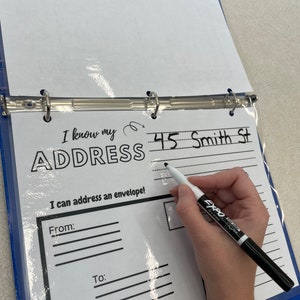 I know my
ADDRESS
45 Smith St
I can address an envelope!
From:
To:
EXPO